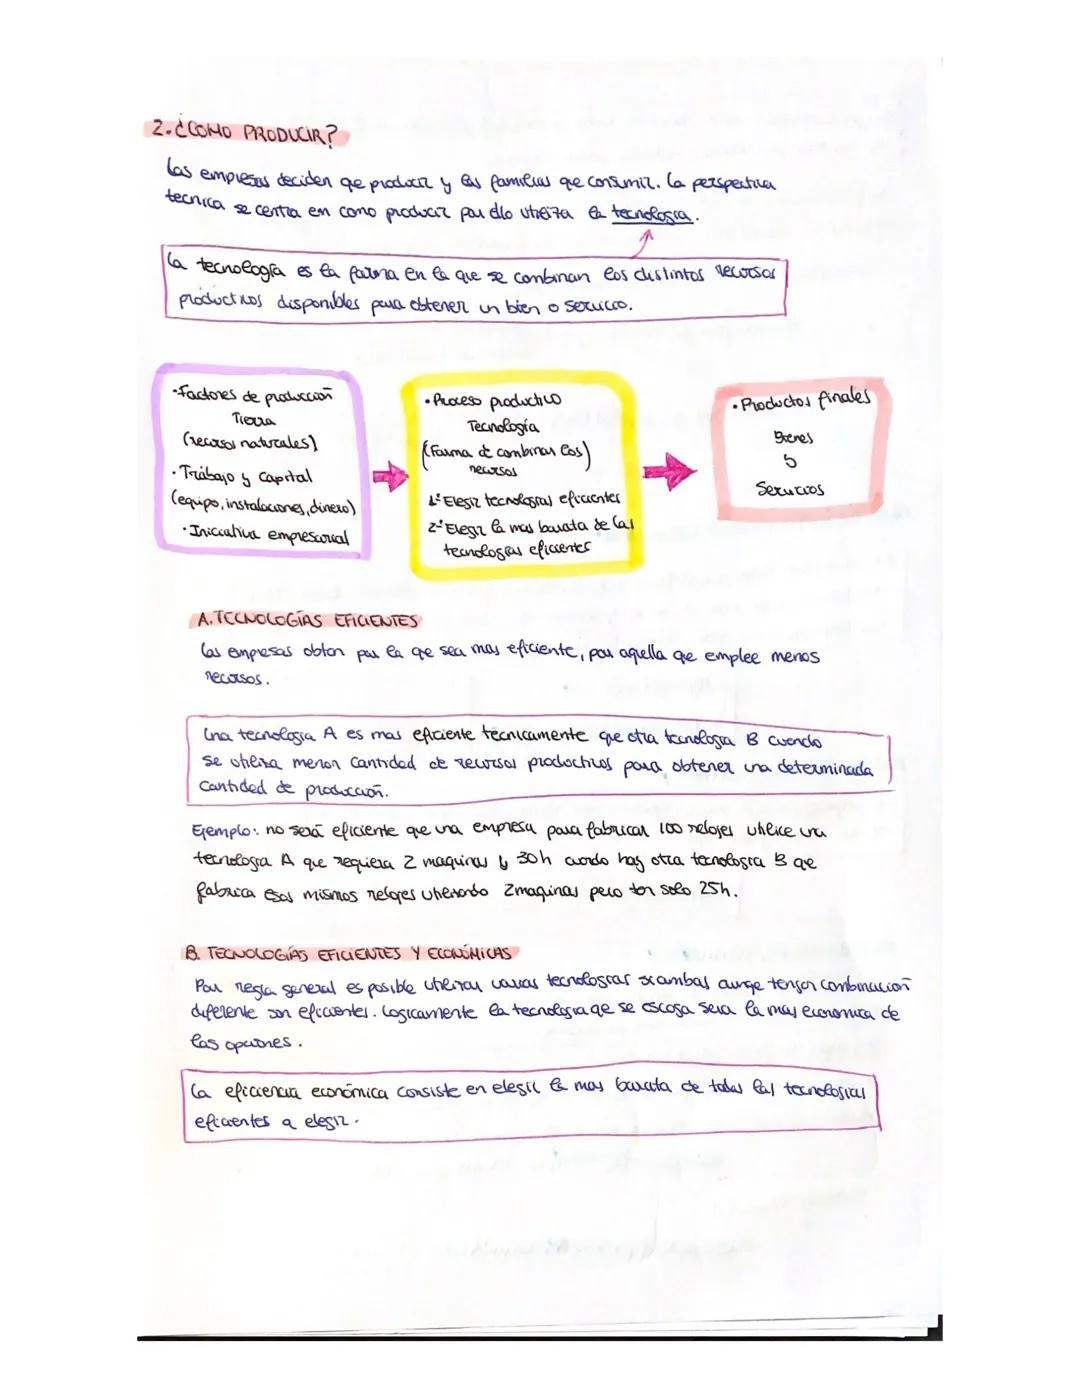 2. ¿COMO PRODUCIR?
Las empresas deciden que producir y las familias que consumir. La perspectiva
tecnica se centra en como producir para ello utiliza la tecnologia.
La tecnología es la forma en la que se combinan los distintos recursos
productivos disponibles para obtener un bien o servicio.
·Factores de producción
Tierra
(recursos naturales)
·Trabajo y capital
(equipo, instalaciones, dinero)
·Iniciativa empresarial
·Proceso productivo
Tecnología
(Forma de combinar los)
recursos
1º Elegir tecnologias eficientes
2º Elegir la mas barata de las
tecnologias eficientes
·Productos finales
Bienes
y
Servicios
A. TECNOLOGÍAS EFICIENTES
Las empresas obtan por la que sea mas eficiente, por aquella que emplee menos
recursos.
Una tecnologia A es mas eficiente técnicamente que otra tecnologia B cuando
se utiliza menor cantidad de recursos productivos para obtener una determinada
cantidad de producción.
Ejemplo: no será eficiente que una empresa para fabricar 100 relojes utilice una
tecnologia A que requiera 2 maquinas y 30h cuando hay otra tecnologia B que
fabrica esos mismos relojes utilizando 2 maquinas pero con solo 25h.
B. TECNOLOGÍAS EFICIENTES Y ECONÓMICAS
Por regla general es posible utilizar varias tecnologias si ambas aunque tengan combinación
diferente son eficientes. Logicamente la tecnologia que se escoja sera la mas economica de
las opciones.
La eficiencia económica consiste en elegir la mas barata de todas las tecnologias
eficientes a elegir.